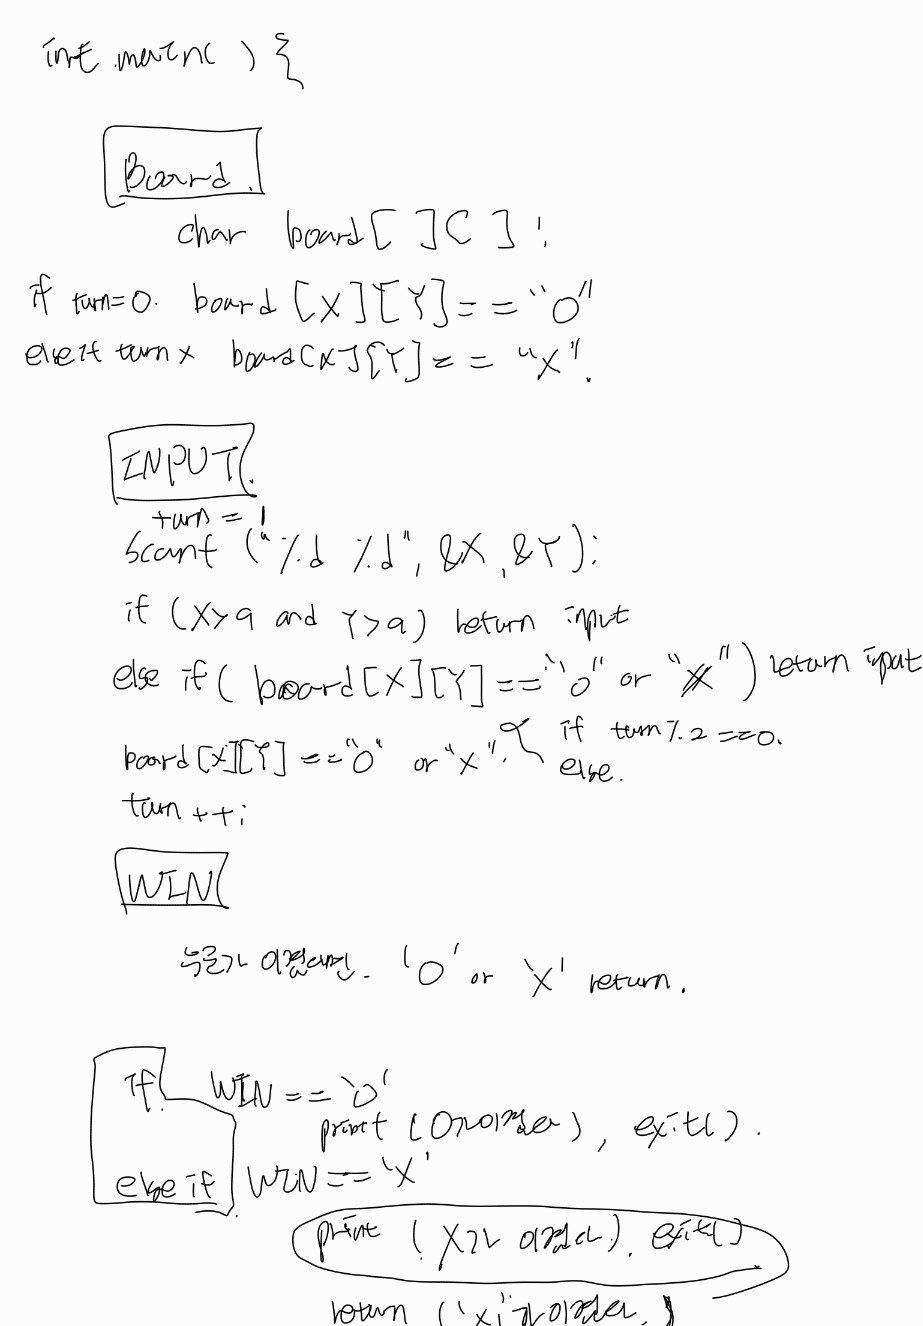 int main( ) {
Board.
char board[ ][ ] ;
if turn=0. board [X][Y]== "O"
else if turn x board[X][Y]== "X".
INPUT.
turn = 1
Scanf ("%d %d", &X, &Y);
if (X>9 and Y>9) return input
else if( board[X][Y]== "O" or "X") return input
board[X][Y] == "O" or "X". { if turn%2 ==0.
else.
turn ++;
WIN
누군가 이겼다면. 'O' or 'X' return.
if WIN == 'O'
print (O가이겼다), exit().
else if WIN == 'X'
print (X가 이겼다). exit()
return ('X'가이겼다.)